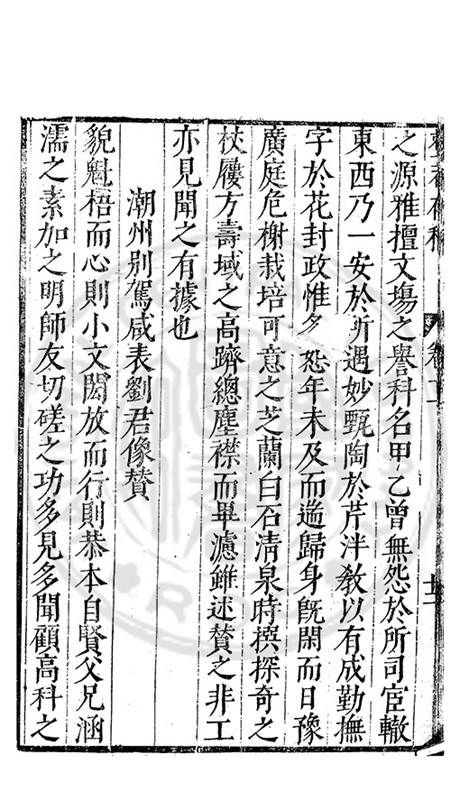 之源雅擅文場之譽科名甲乙曾無怨於所司宦轍
東西乃一安於所遇妙甄陶於芹泮敎以有成勤撫
字於花封政惟多恕年未及而遄歸身旣閑而日豫
廣庭危榭栽培可意之芝蘭白石清泉時撰探奇之
杖屨方壽域之高躋總塵襟而畢濾雖述賛之非工
亦見聞之有據也
潮州别駕咸表劉君像賛
貌魁梧而心則小文閎放而行則恭本自賢父兄涵
濡之素加之明師友切磋之功多見多聞顧高科之